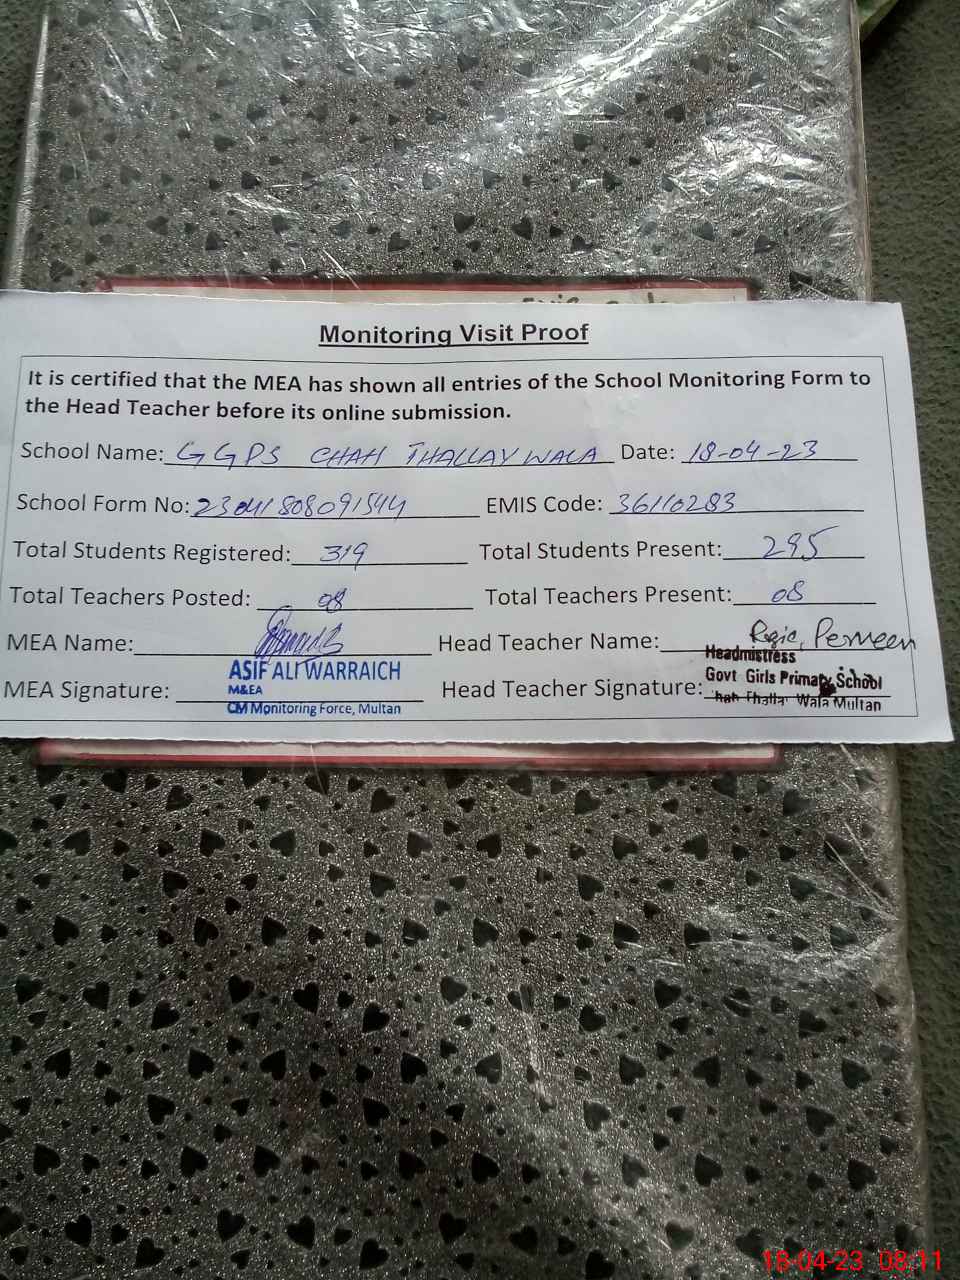 Monitoring Visit Proof
It is certified that the MEA has shown all entries of the School Monitoring Form to
the Head Teacher before its online submission.
School Name: GGPS CHAH THALLAY WALA Date: 18-04-23
School Form No: 23041808091544 EMIS Code: 36110283
Total Students Registered: 319 Total Students Present: 295
Total Teachers Posted: 08 Total Teachers Present: 08
MEA Name: Head Teacher Name: Perveen
MEA Signature: Head Teacher Signature:
ASIF ALI WARRAICH
M&EA
CM Monitoring Force, Multan
Headmistress
Govt Girls Primary School
Wala Multan
18-04-23 08:11